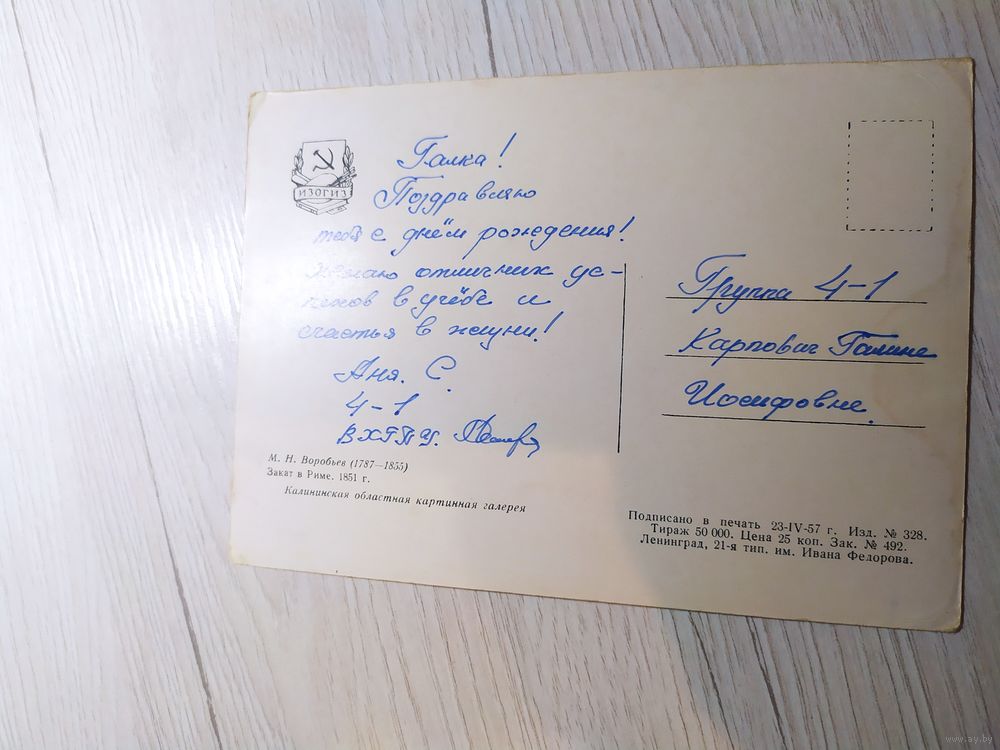 ИЗОГИЗ
Галка!
Поздравляю
тебя с днём рождения!
Желаю отличных ус-
пехов в учёбе и
счастья в жизни!
Аня. С.
4-1
ВХГПУ.
М. Н. Воробьев (1787—1855)
Закат в Риме. 1851 г.
Калининская областная картинная галерея
Группа 4-1
Карпович Галине
Иосифовне.
Подписано в печать 23-IV-57 г. Изд. № 328.
Тираж 50 000. Цена 25 коп. Зак. № 492.
Ленинград, 21-я тип. им. Ивана Федорова.
www.ay.by